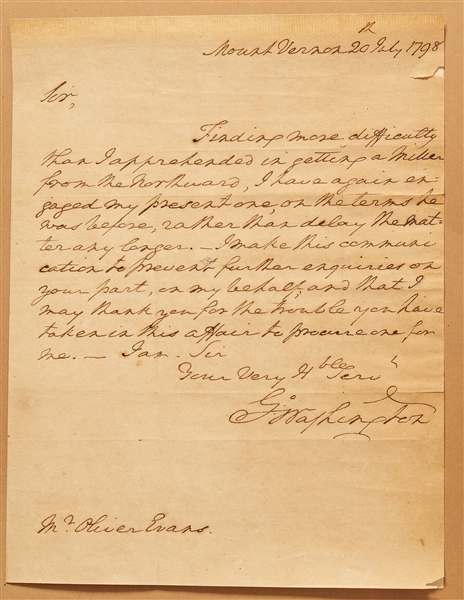 Mount Vernon 20th July 1798
Sir,
Finding more difficulty
than I apprehended in getting a Miller
from the Northward, I have again en-
gaged my present one, on the terms he
was before, rather than delay the mat-
ter any longer. — I make this communi
cation to prevent further enquiries on
your part, on my behalf, and that I
may thank you for the trouble you have
taken in this affair to procure one for
me. — I am - Sir
Your Very Hble Servt
Go Washington
Mr Oliver Evans.